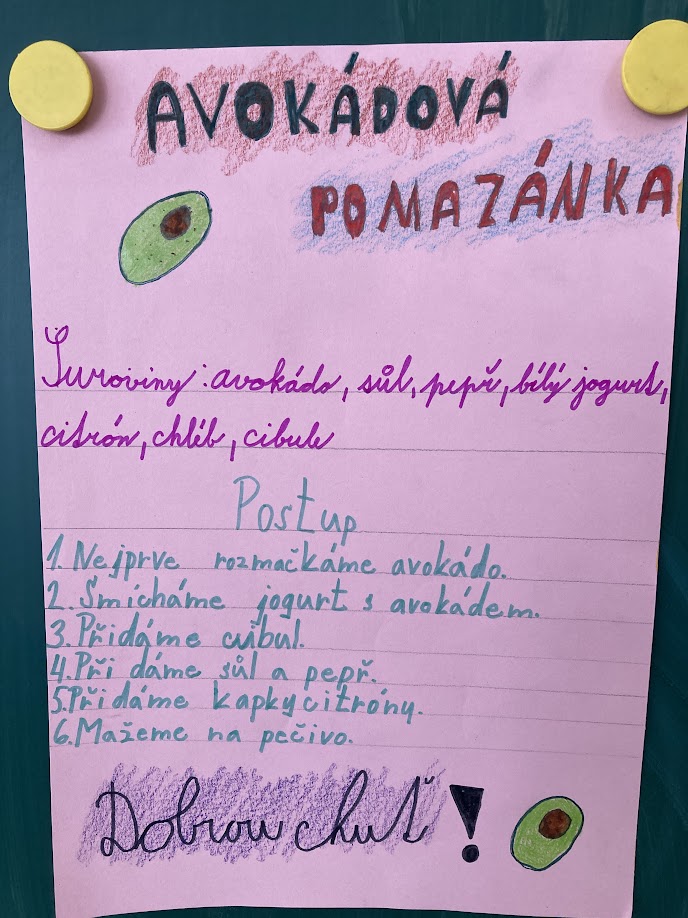 AVOKÁDOVÁ
POMAZÁNKA
Suroviny: avokádo, sůl, pepř, bílý jogurt,
citrón, chléb, cibule
Postup
1. Nejprve rozmačkáme avokádo.
2. Smícháme jogurt s avokádem.
3. Přidáme cibul.
4. Při dáme sůl a pepř.
5. Přidáme kapky citróny.
6. Mažeme na pečivo.
Dobrou chuť!